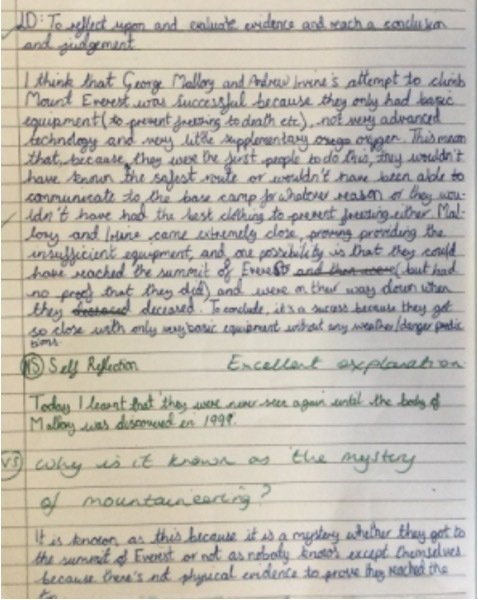 LO: To reflect upon and evaluate evidence and reach a conclusion
and judgement.
I think that George Mallory and Andrew Irvine's attempt to climb
Mount Everest was successful because they only had basic
equipment (to prevent freezing to death etc), not very advanced
technology and very little supplementary oxygen. This mean
that, because they were the first people to do this, they wouldn't
have known the safest route or wouldn't have been able to
communicate to the base camp for whatever reason or they wou-
ldn't have had the best clothing to prevent freezing either. Mal-
lory and Irvine came extremely close, proving providing the
insufficient equipment, and one possibility is that they could
have reached the summit of Everest (but had
no proof that they did) and were on their way down when
they deceased. To conclude, it's a sucess because they got
so close with only very basic equipment without any weather/danger predic
tions.
Self Reflection Excellent explanation
Today I learnt that they were never seen again until the body of
Mallory was discovered in 1999.
Why is it known as the mystery
of mountaineering?
It is known as this because it is a mystery whether they got to
the summit of Everest or not as nobody knows except themselves
because there's not physical evidence to prove they reached the